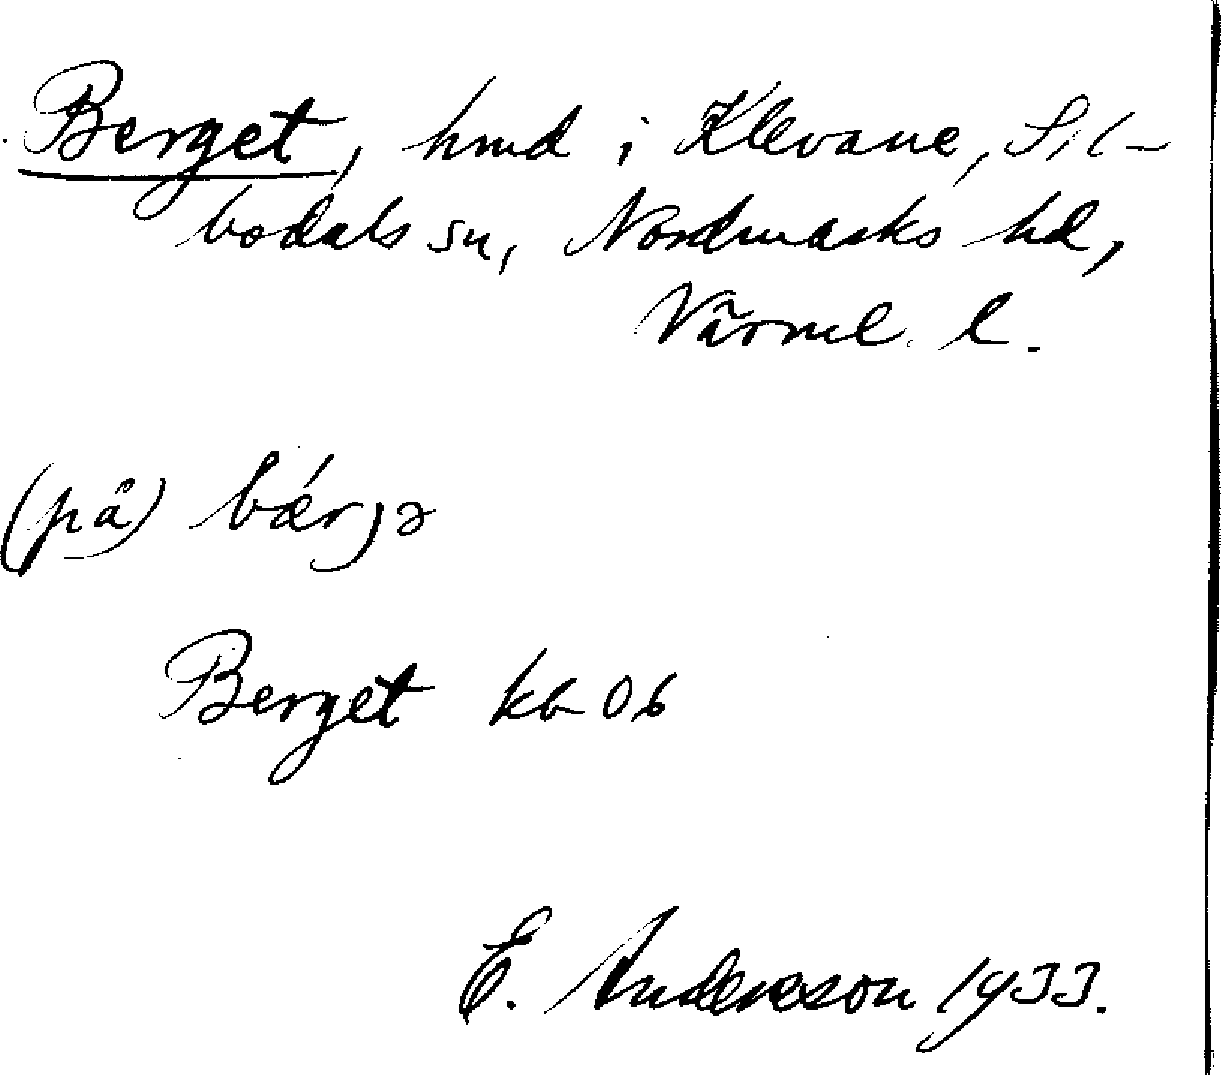 Berget, hmd i Klevane, Sil-
bodals sn, Nordmarks hd,
Värml. l.
(på) bǽrjə
Berget kb 06
E. Andersson 1933.